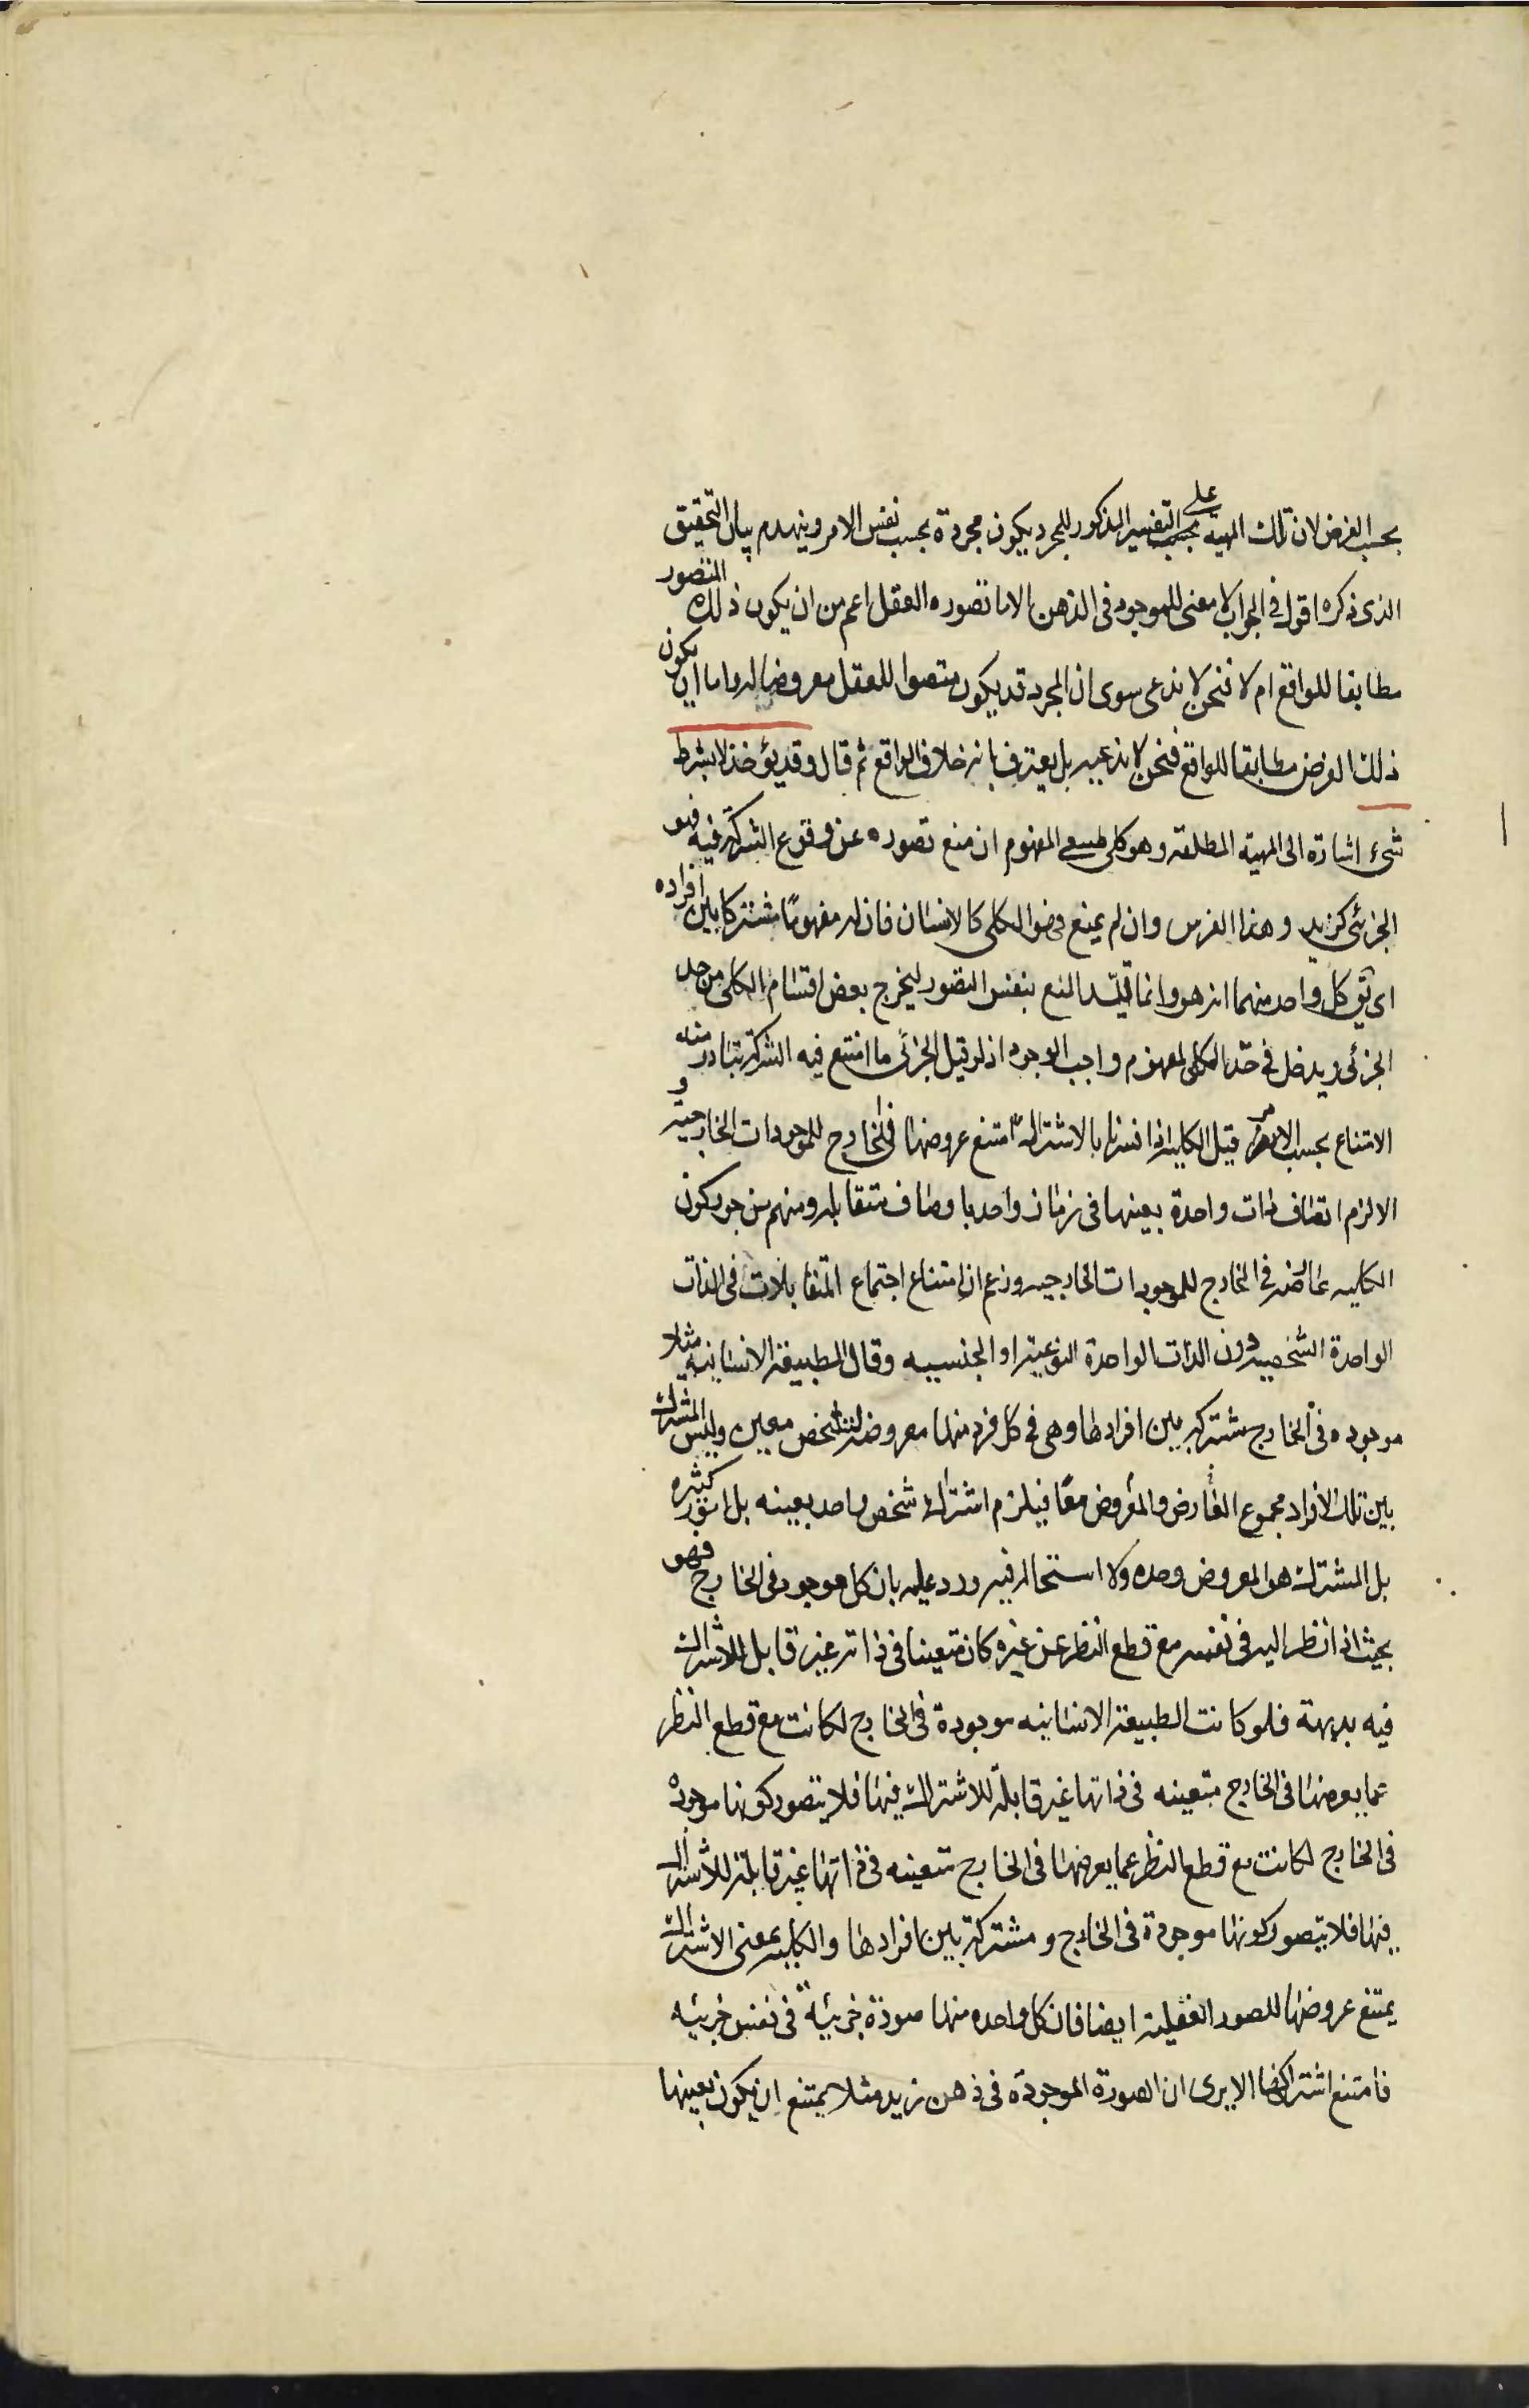 بحسب الفرض لان تلك المهية على بحسب التفسير المذكور للمجرد يكون مجردة بحسب نفس الامر وينهدم بيان التحقيق
الذى ذكره اقول فى الجواب لا معنى للموجود فى الذهن الا ما تصوره العقل اعم من ان يكون ذلك المتصور
مطابقا للواقع ام لا فنحن لا ندعى سوى ان المجرد قد يكون متصورا للعقل معروضا له واما ان يكون
ذلك الفرض مطابقا للواقع فنحن لا ندعيه بل يعترف بانه خلاف الواقع ثم قال وقد يؤخذ لا بشرط
شىء اشارة الى المهية المطلقه وهو كلى طبيعى المفهوم ان منع تصوره عن وقوع الشركة فيه فهو
الجزئى كزيد وهذا الفرس وان لم يمنع فهو الكلى كالانسان فان له مفهومًا مشتركا بين افراده
اى يق كل واحد منهما انه هو وانما قيّد المنع بنفس التصور ليخرج بعض اقسام الكلى من حد
الجزئى ويدخل فى حدّ الكلى لمفهوم واجب الوجود اذ لو قيل الجزئى ما امتنع فيه الشركة تبادر منه
الامتناع بحسب الامر قيل الكليه اذا فسرنا بالاشتراك امتنع عروضها فى الخارج للموجودات الخارجية و
الا لزم اتصاف ذات واحدة بعينها فى زمان واحد باوصاف متقابله ومنهم من جوز كون
الكليه عارضه فى الخارج للموجودات الخارجيه وزعم ان امتناع اجتماع المتقابلات فى الذات
الواحدة الشخصيه دون الذات الواحدة النوعية او الجنسيه وقال الطبيعة الانسانيه مثلا
موجوده فى الخارج مشتركه بين افرادها وهى فى كل فرد منها معروضة لتشخص معين وليس المشترك
بين تلك الافراد مجموع العارض والمعروض معًا فيلزم اشتراك شخص واحد بعينه بل امور كثيره
بل المشترك هو المعروض وحده ولا استحاله فيه ورد عليه بان كل موجود فى الخارج فهو
بحيث اذا نظر اليه فى نفسه مع قطع النظر عن غيره كان متعينا فى ذاته غير قابل للاشتراك
فيه بديهة فلو كانت الطبيعة الانسانيه موجودة فى الخارج لكانت مع قطع النظر
عما يعرضها فى الخارج متعينه فى ذاتها غير قابلة للاشتراك فيها فلا يتصور كونها موجوده
فى الخارج لكانت مع قطع النظر عما يعرضها فى الخارج متعينه فى ذاتها غير قابلة للاشتراك
فيها فلا يتصور كونها موجودة فى الخارج ومشتركة بين افرادها والكليه بمعنى الاشتراك
يمتنع عروضها للصور العقلية ايضا فان كل واحده منها صورة جزئية فى نفس جزئيه
فامتنع اشتراكها الا يرى ان الصورة الموجودة فى ذهن زيد مثلا يمتنع ان يكون بعينها